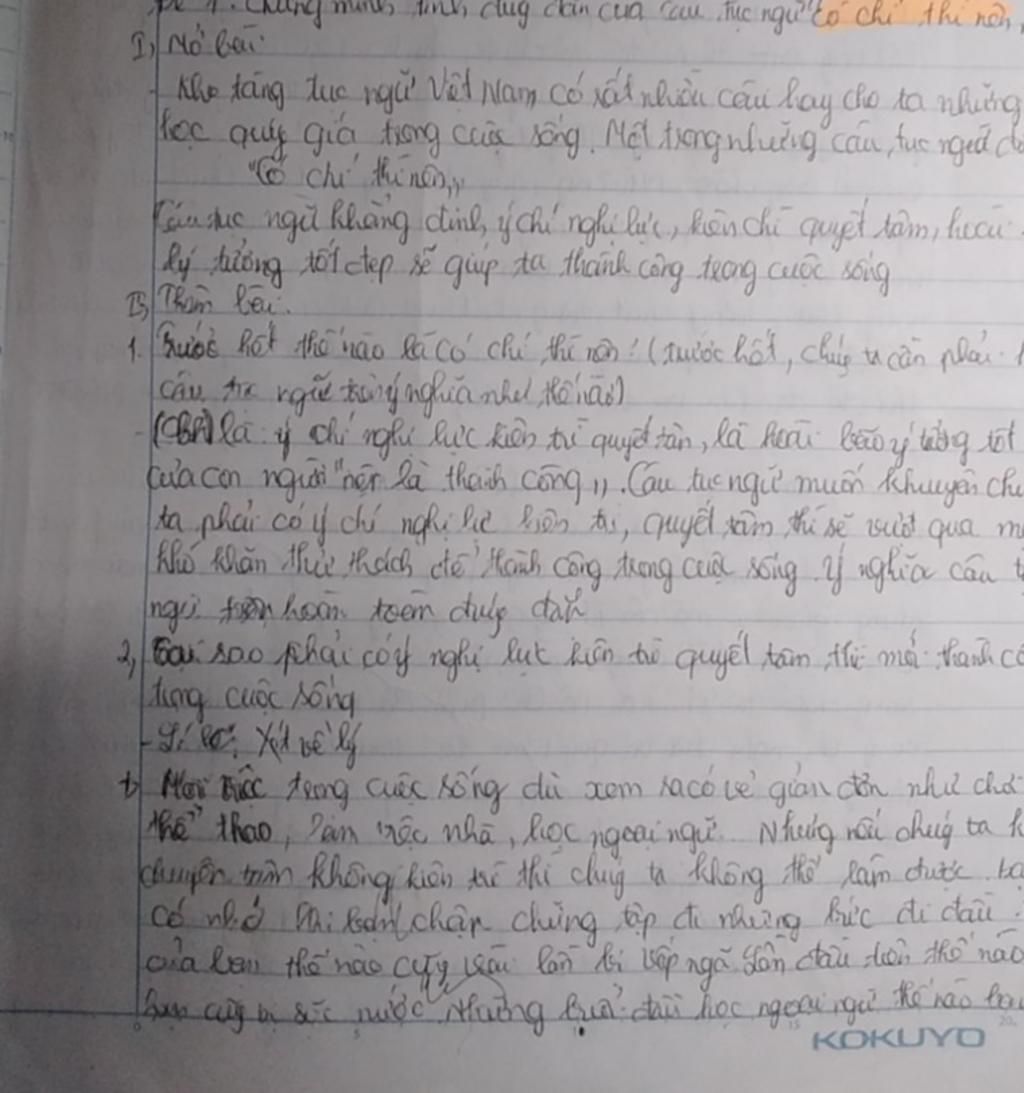 Chứng minh tính đúng đắn của câu tục ngữ "có chí thì nên
I, Mở bài:
- Kho tàng tục ngữ Việt Nam có rất nhiều câu hay cho ta những
học quý giá trong cuộc sống. Một trong những câu tục ngữ đó
"Có chí thì nên"
Câu tục ngữ khẳng định ý chí nghị lực, kiên chì quyết tâm, hoài
lý tưởng tốt đẹp sẽ giúp ta thành công trong cuộc sống
II, Thân bài:
1. Trước hết thế nào là có chí thì nên! (trước hết, chúng ta cần phải
câu tục ngữ trên ý nghĩa như thế nào)
là ý chí nghị lực kiên trì quyết tâm, là hoài bão ý tưởng tốt
của con người "nên là thành công". Câu tục ngữ muốn khuyên chú
ta phải có ý chí nghị lực kiên trì, quyết tâm thì sẽ vượt qua
khó khăn thử thách để thành công trong cuộc sống. Ý nghĩa câu
ngữ hoàn toàn đúng đắn
2, Tại sao phải có ý nghị lực kiên trì quyết tâm thì mới thành cô
trong cuộc sống
- Xét về lý
+ Mọi việc trong cuộc sống dù xem ra có vẻ giản đơn như chơi
thể thao, làm việc nhà, học ngoại ngữ. Nhưng nếu chúng ta k
chuyên tâm không kiên trì thì chúng ta không thể làm được.
có nhớ khi bạn chập chững tập đi những bước đi đầu
của bạn thế nào cũng vấp ngã lần đầu tiên thế nào
bạn cũng bị sặc nước Những buổi đầu học ngoại ngữ thế nào
KOKUYO